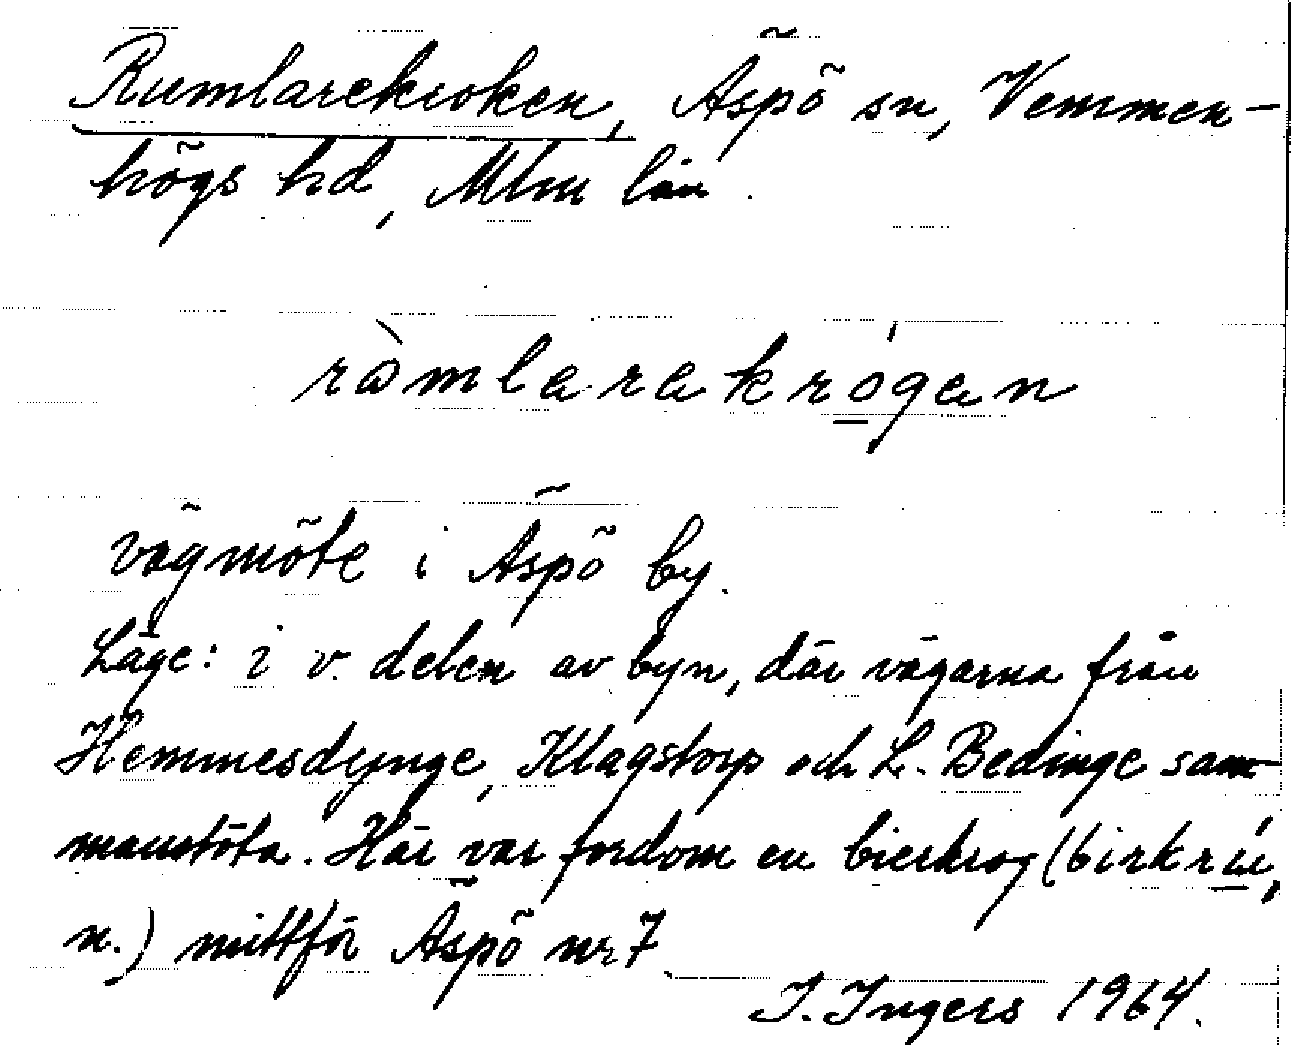 Rumlarekroken, Äspö sn, Vemmen-
högs hd, Mlm län.
ràmlarakrógan
vägmöte i Äspö by.
Läge: i v. delen av byn, där vägarna från
Hemmesdynge, Klagstorp och L. Bedinge sam-
manstöta. Här var fordom en bierkrog (birkrú,
n.) mittför Äspö nr 7
I. Ingers 1964.